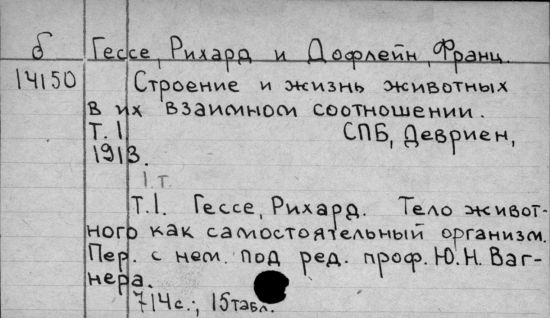 б Гессе, Рихард и Дофлейн, Франц.
14150 Строение и жизнь животных
в их взаимном соотношении.
Т. I СПБ, Девриен,
1913.
I. т.
Т.I. Гессе, Рихард. Тело живот-
ного как самостоятельный организм.
Пер. с нем. под ред. проф. Ю.Н. Ваг-
нера.
714 с.; 15 табл.